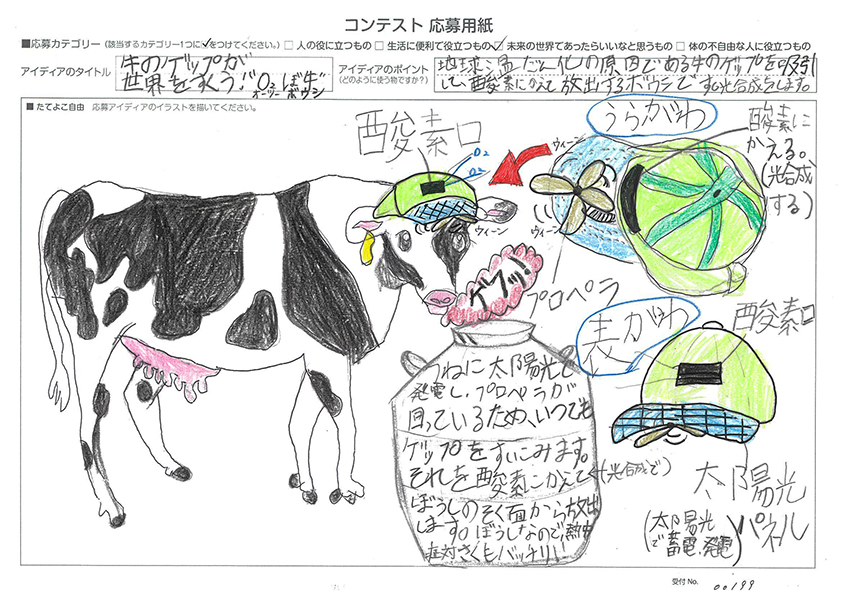 コンテスト 応募用紙
■応募カテゴリー（該当するカテゴリー1つに✓をつけてください。） □ 人の役に立つもの □ 生活に便利で役立つもの ☑ 未来の世界であったらいいなと思うもの □ 体の不自由な人に役立つもの
アイディアのタイトル
牛のゲップが
世界をすくう!! O2ぼ牛
オーツー ボウシ
アイディアのポイント
（どのように使う物ですか？）
地球温だん化の原因である牛のゲップを吸引
して、酸素にかえて放出するボウシです。光合成もします。
■ たてよこ自由 応募アイディアのイラストを描いてください。
酸素口
O2
O2
ウィーン
ゲフッ!
うらがわ
ウィーン
ウィーン
プロペラ
酸素に
かえる。
(光合成
する)
表がわ
酸素口
太陽光
パネル
(太陽光
で蓄電、発電)
つねに太陽光で
発電し、プロペラが
回っているため、いつでも
ゲップをすいこみます。
それを酸素にかえて(光合成で)
ぼうしのそく面から放出
します。ぼうしなので、熱中
症対さくもバッチリ!
受付 No. 00199